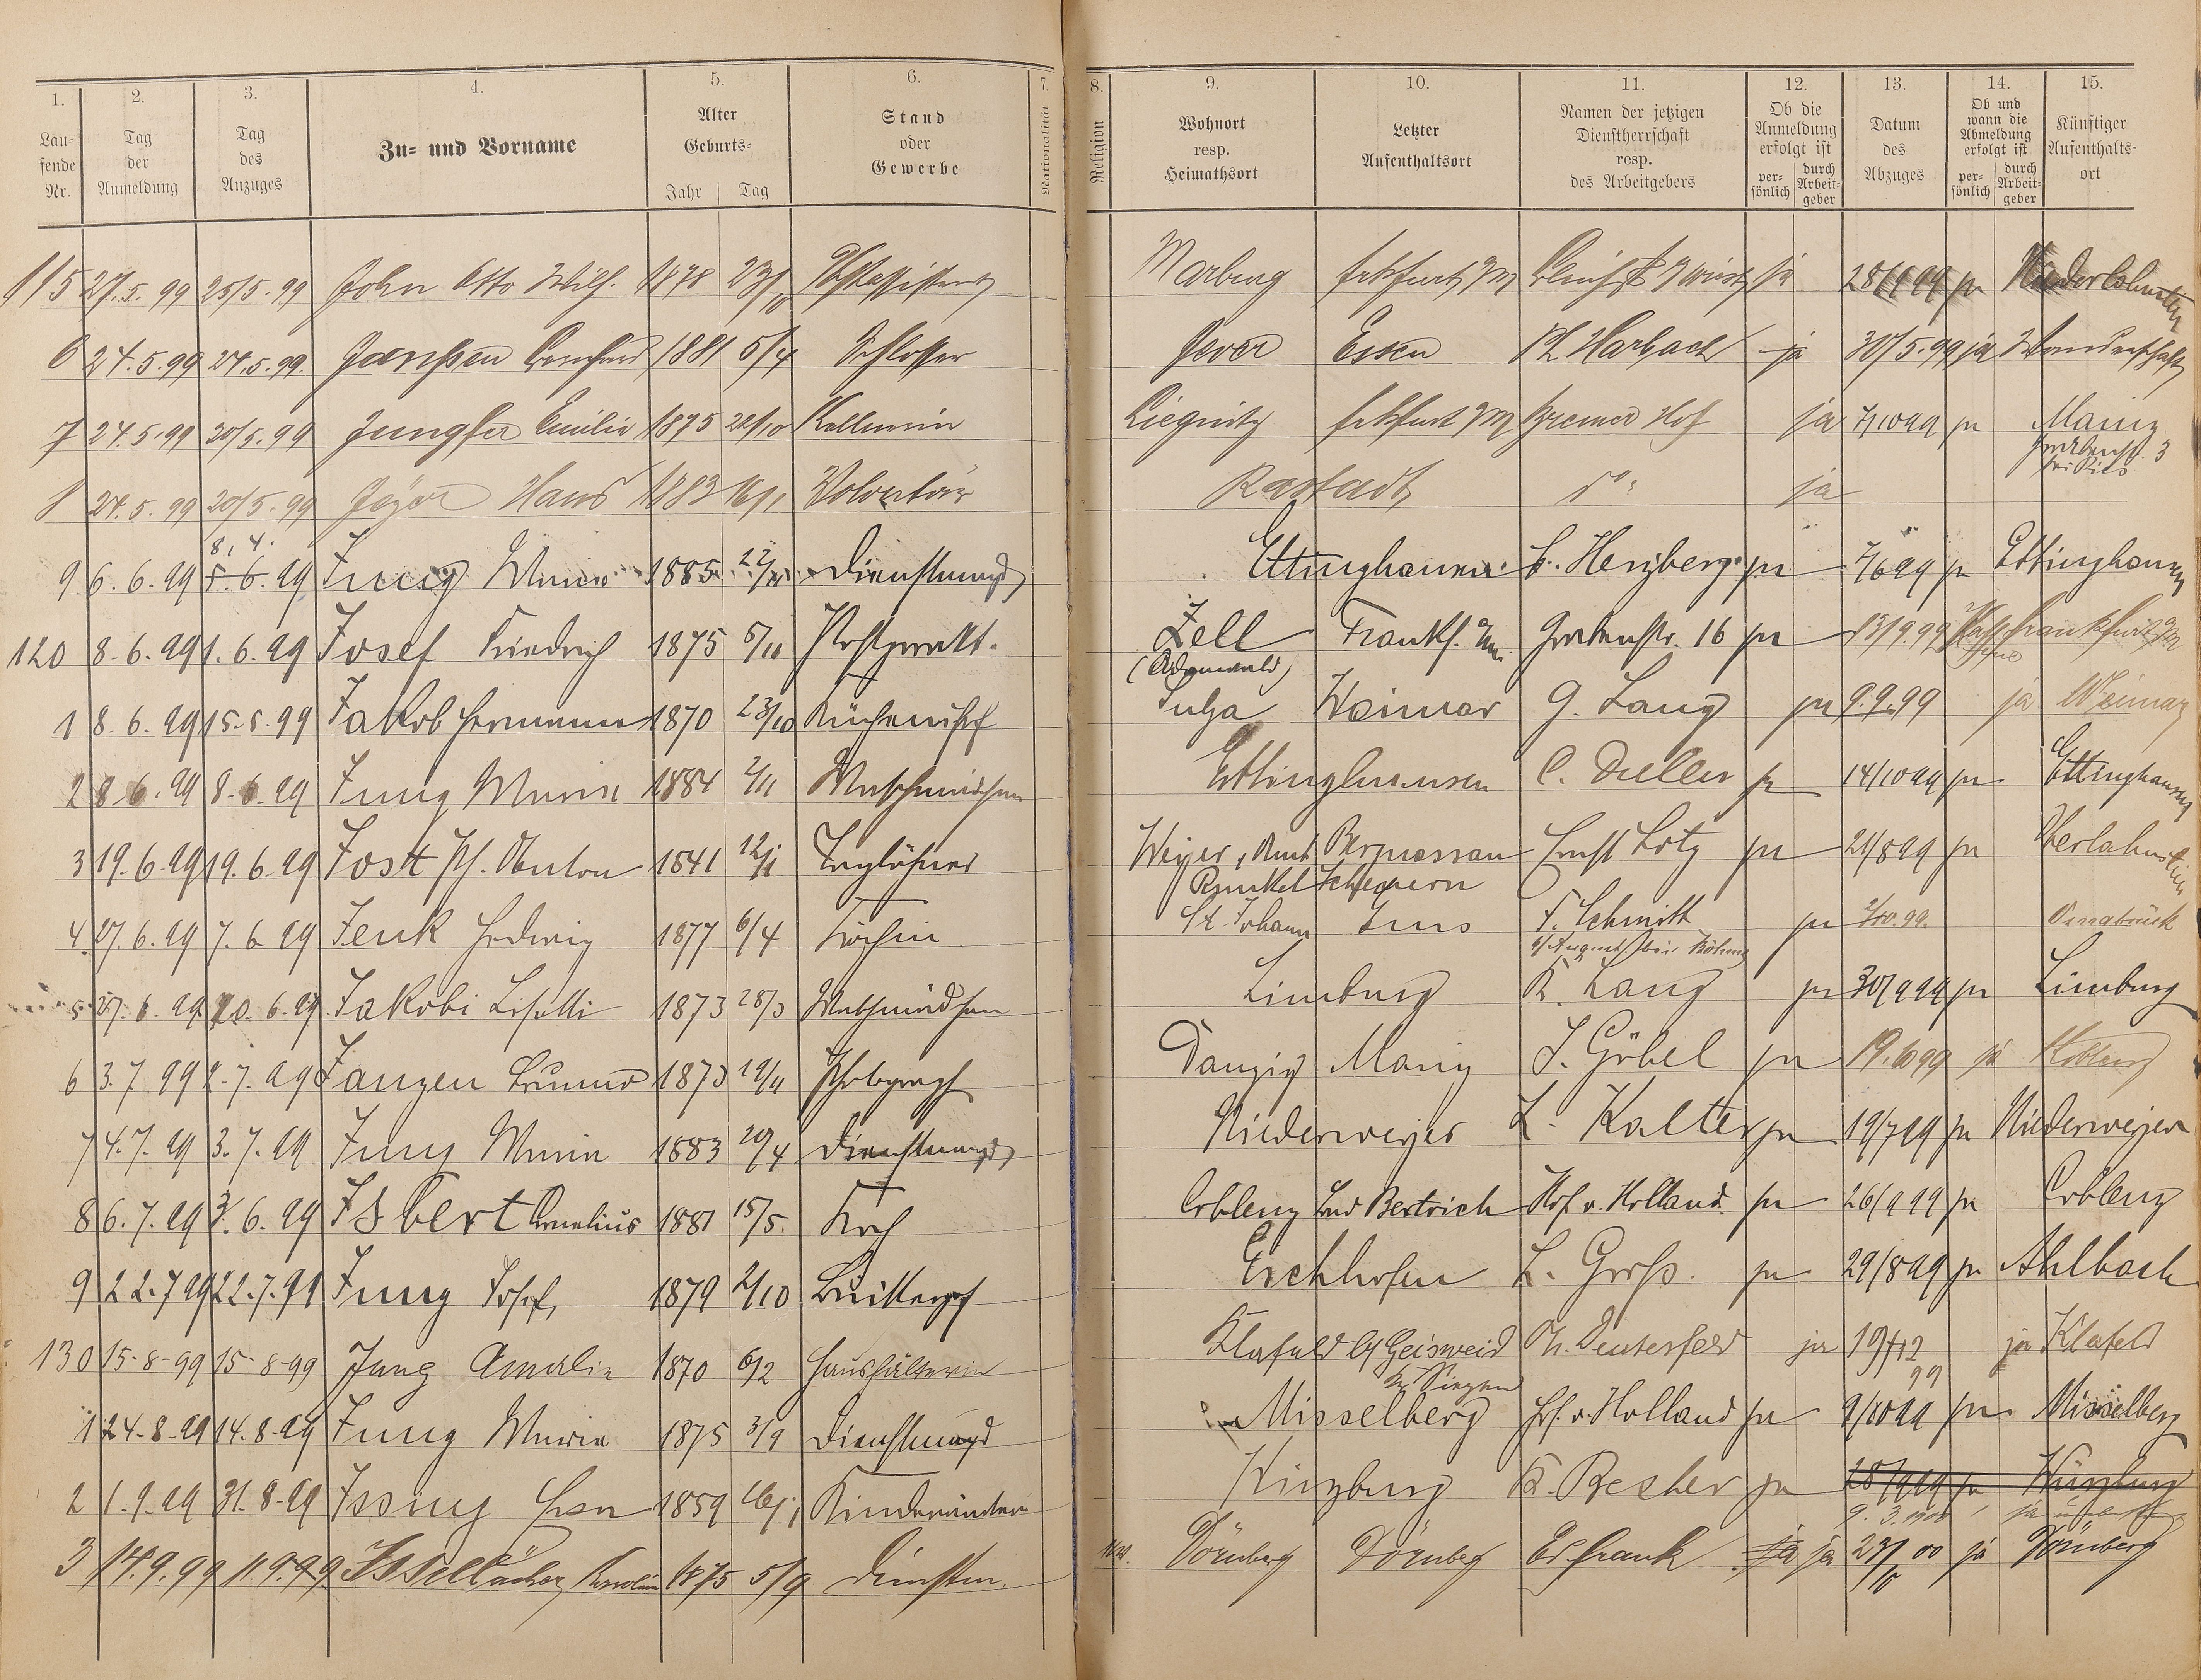 1. 2. 3. 4. 5. 6. 7. 8. 9. 10. 11. 12. 13. 14. 15.
Lau-
fende
Nr.
Tag
der
Anmeldung
Tag
des
Anzuges
Zu- und Vorname
Alter
Geburts-
Jahr Tag
Stand
oder
Gewerbe
Nationalität
Religion
Wohnort
resp.
Heimathsort
Letzter
Aufenthaltsort
Namen der jetzigen
Dienstherrschaft
resp.
des Arbeitgebers
Ob die
Anmeldung
erfolgt ist
per-
sönlich
durch
Arbeit-
geber
Datum
des
Abzuges
Ob und
wann die
Abmeldung
erfolgt ist
per-
sönlich
durch
Arbeit-
geber
Künftiger
Aufenthalts-
ort
115 27.5.99 25/5.99 John Otto Wilh. 1878 Marburg ja Niederlahnstein
6 24.5.99 24.5.99 Janßen Bernhard 1881 5/4 Schlosser Jever Essen Ph. Harbach ja 30/5.99 ja Wanderschaft
7 24.5.99 20/5.99 Jungfer Emilie 1875 Kellnerin Liegnitz Frkfurt a/M Bremer Hof ja 7/10 99 ja Mainz
8 24.5.99 20/5.99 Hans 1883 16/1 Volontär Rastadt do ja
8. 4.
9 6.6.99 5.6.99 Jung Maria 1885 Dienstmagd Ettinghausen Herzberg ja 7/6 99 ja Ettinghausen
120 8.6.99 1.6.99 Josef Friedrich 1875 5/11 Postprakt. Zell Frankf. a/M. Grabenstr. 16 ja 13/9.99 Frankfurt a/M
(Odenwald)
1 8.6.99 15.5.99 Jakob Hermann 1870 23/10 Küchenchef Sulza Weimar G. Lang ja 9.9.99 ja Weimar
2 8.6.99 8.6.99 Jung Maria 1884 2/11 Waschmädchen Ettinghausen C. Duller ja 14/10 99 ja Ettinghausen
3 19.6.99 19.6.99 Jost Ph. Anton 1841 12/1 Taglöhner Weyer, Amt Bergnassau Ernst Lotz ja 21/8 99 ja Oberlahnstein
Runkel Scheuern
4 27.6.99 7.6.99 Jenk Hedwig 1877 6/4 Köchin St. Johann Ems F. Schmitt ja Osnabrück
5 27.6.99 20.6.99 Jakobi 1873 28/3 Waschmädchen Limburg K. Lang ja 30/9 99 ja Limburg
6 3.7.99 2.7.99 Janzen Bruno 1873 19/11 Photograph Danzig Mainz J. Göbel ja 19.10 99 ja Koblenz
7 4.7.99 3.7.99 Jung Maria 1883 20/4 Dienstmagd Niederweyer L. Kalter ja 19/7 99 ja Niederweyer
8 6.7.99 3.6.99 Isbert Cornelius 1881 15/5. Koch Coblenz Bad Bertrich Hof v. Holland. ja 26/9 99 ja Coblenz
9 22.7.99 22.7.99 Jung Josef, 1879 2/10 Eschhofen L. Groß. ja 29/8 99 ja Ahlbach
130 15-8-99 15-8-99 Jung Amalie 1870 6/2 Haushälterin Klafeld bei Geisweid ja 19/12 ja Klafeld
Kr. Siegen 99
1 24.8.99 14.8.99 Jung Maria 1875 3/9 Dienstmagd Misselberg Hof. v. Holland ja 9/10 99 ja Misselberg
2 1.9.99 31.8.99 Issing 1859 16/1 Würzburg K. Becher ja 28/9 99 ja Würzburg
9.3.1900 ja
3 14.9.99 11.9.99 1875 5/9 Dienstm. Dörnberg Dörnberg Ed Frank ja ja 23/10 00 ja Dörnberg